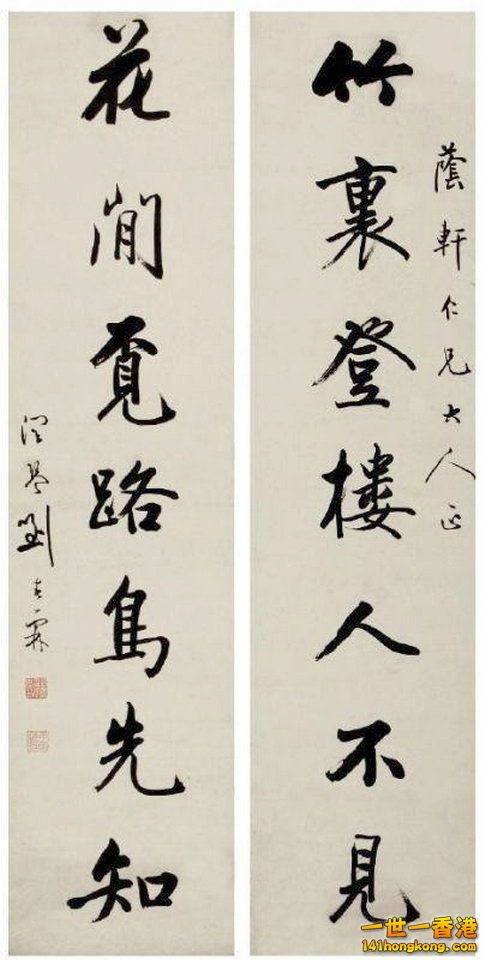 蔭軒仁兄大人正
竹裏登樓人不見
花閒覓路鳥先知
潤琴劉春霖
一世一香港
141hongkong.com